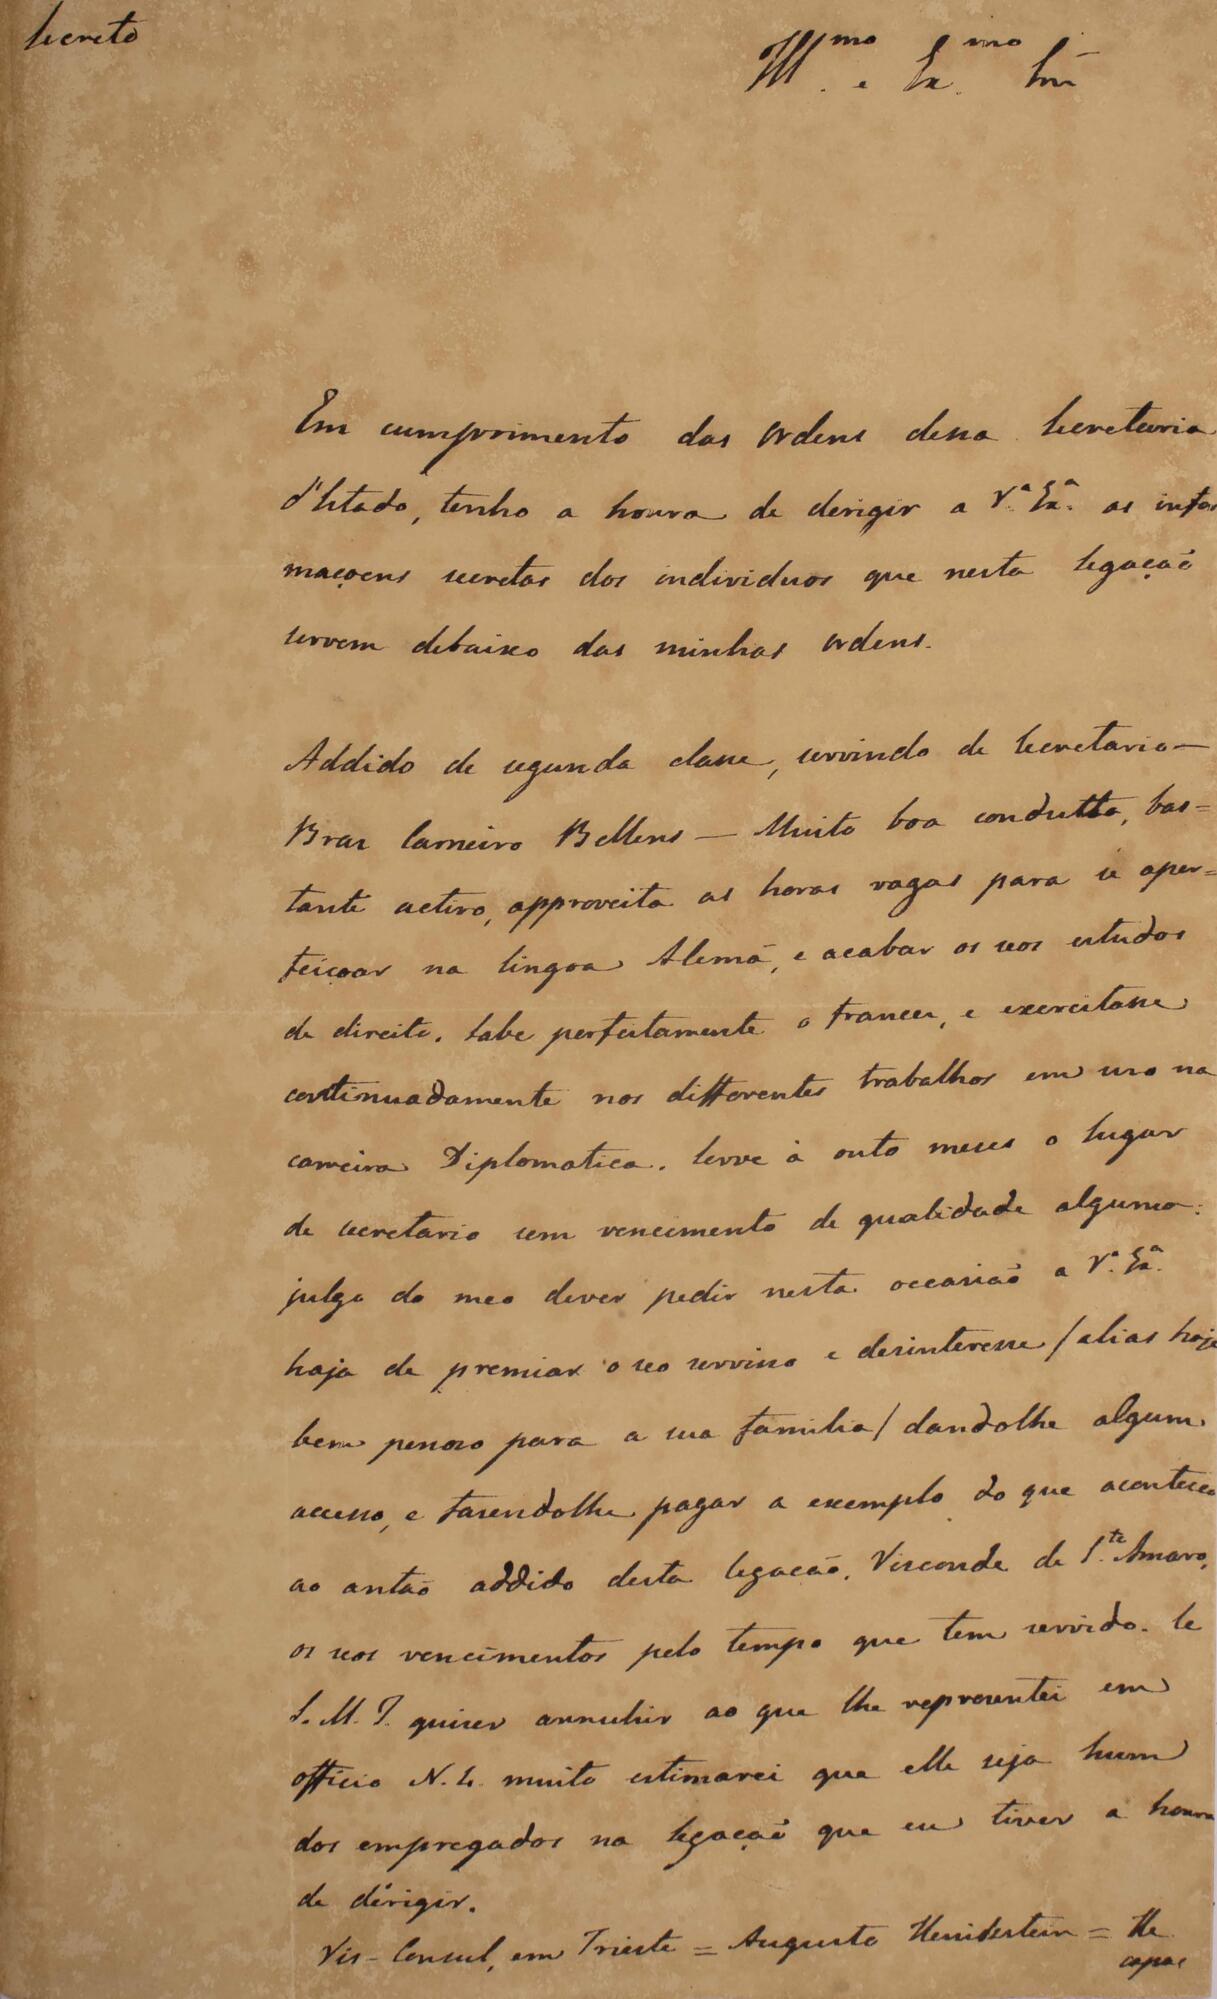 Secreto
Ill.mo e Ex.mo Snr
Em cumprimento das ordens dessa Secretaria
d'Estado, tenho a honra de derigir a V.ª Ex.ª as infor
maçoens secretas dos individuos que nesta Legação
servem debaixo das minhas ordens.
Addido de segunda classe, servindo de Secretario—
Bras Carneiro Bellens — Muito boa condutta, bas=
tante activo, approveita as horas vagas para se aper=
feiçoar na lingoa Alemã, e acabar os seos estudos
de direito. Sabe perfeitamente o francez, e exercitasse
continuadamente nos differentes trabalhos em uso na
carreira Diplomatica. Serve à outo meses o lugar
de secretario sem vencimento de qualidade alguma:
julgo do meo dever pedir nesta occasião a V.ª Ex.ª
haja de premiar o seo serviso e desinteresse / alias hoje
bem penoso para a sua familia / dandolhe algum
acesso, e fasendolhe pagar a exemplo do que aconteceo
ao antão addido desta legação, Visconde de S.to Amaro,
os seos vencimentos pelo tempo que tem servido. Se
S. M. I. quiser annuhir ao que lhe representei em
officio N. 4. muito estimarei que elle seja hum
dos empregados na Legação que eu tiver a honra
de dirigir.
Vis-Consul, em Trieste = Augusto Henidstein = He
capas